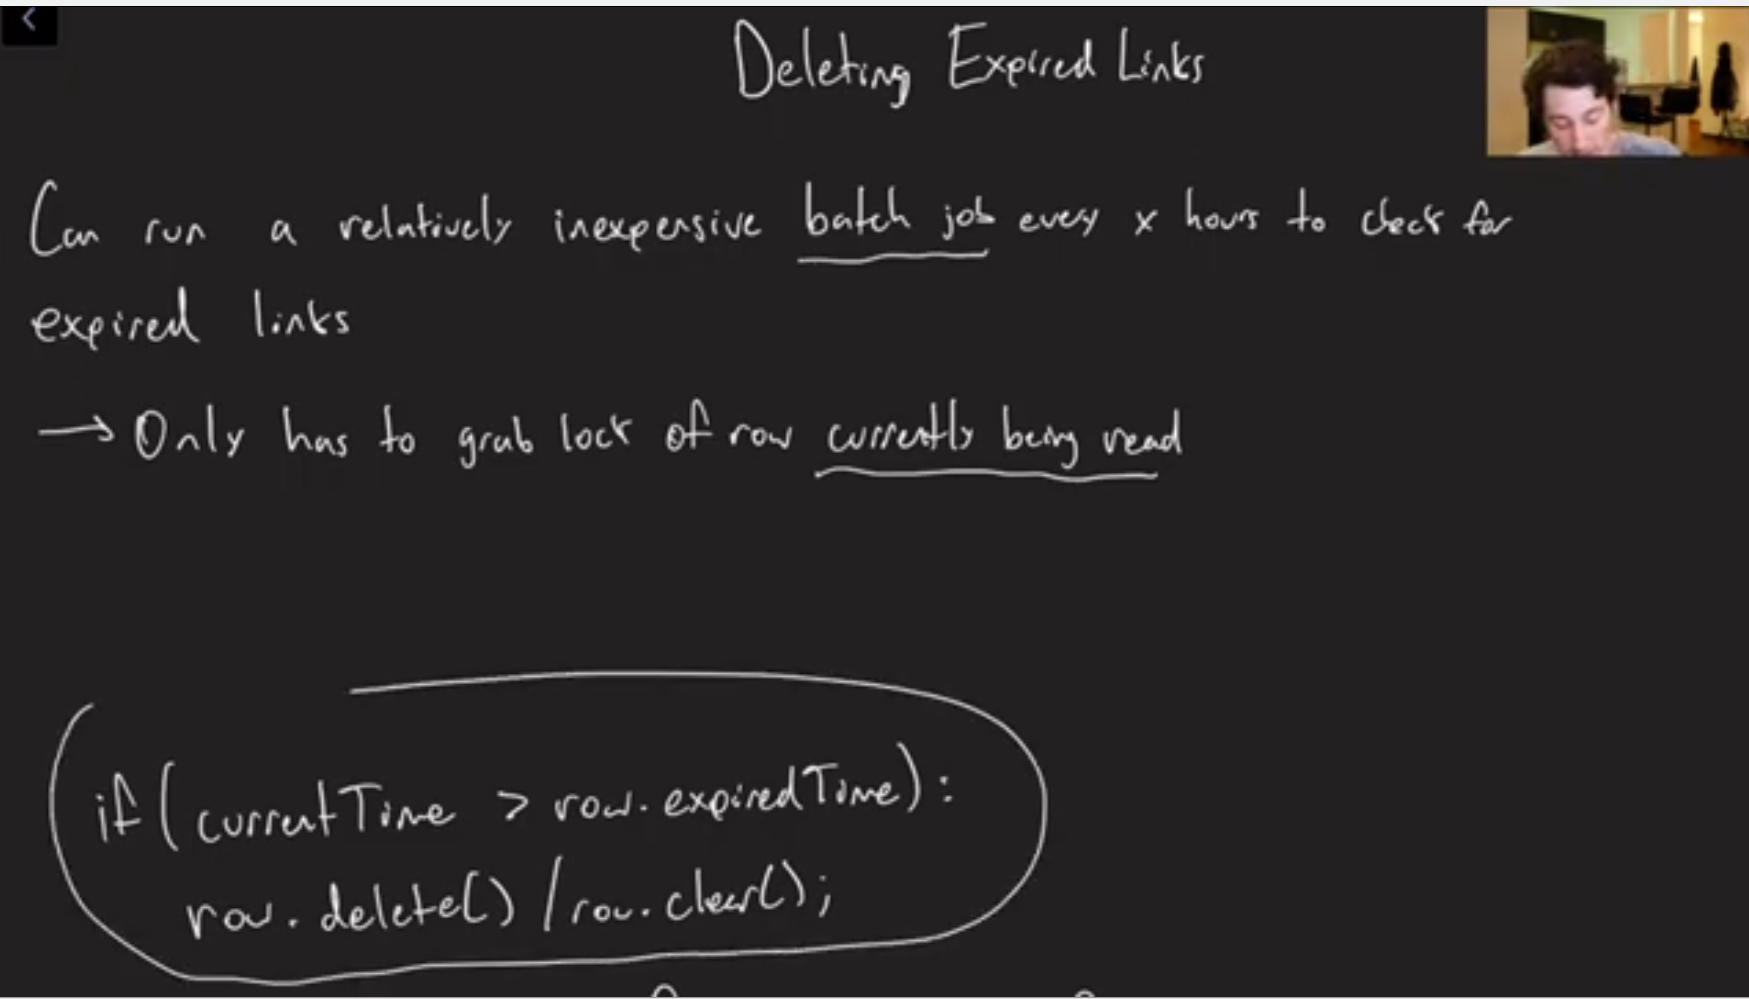 Deleting Expired Links
Can run a relatively inexpensive batch job every x hours to check for
expired links
→ Only has to grab lock of row currently being read
if (currentTime > row.expiredTime):
row.delete() / row.clear();